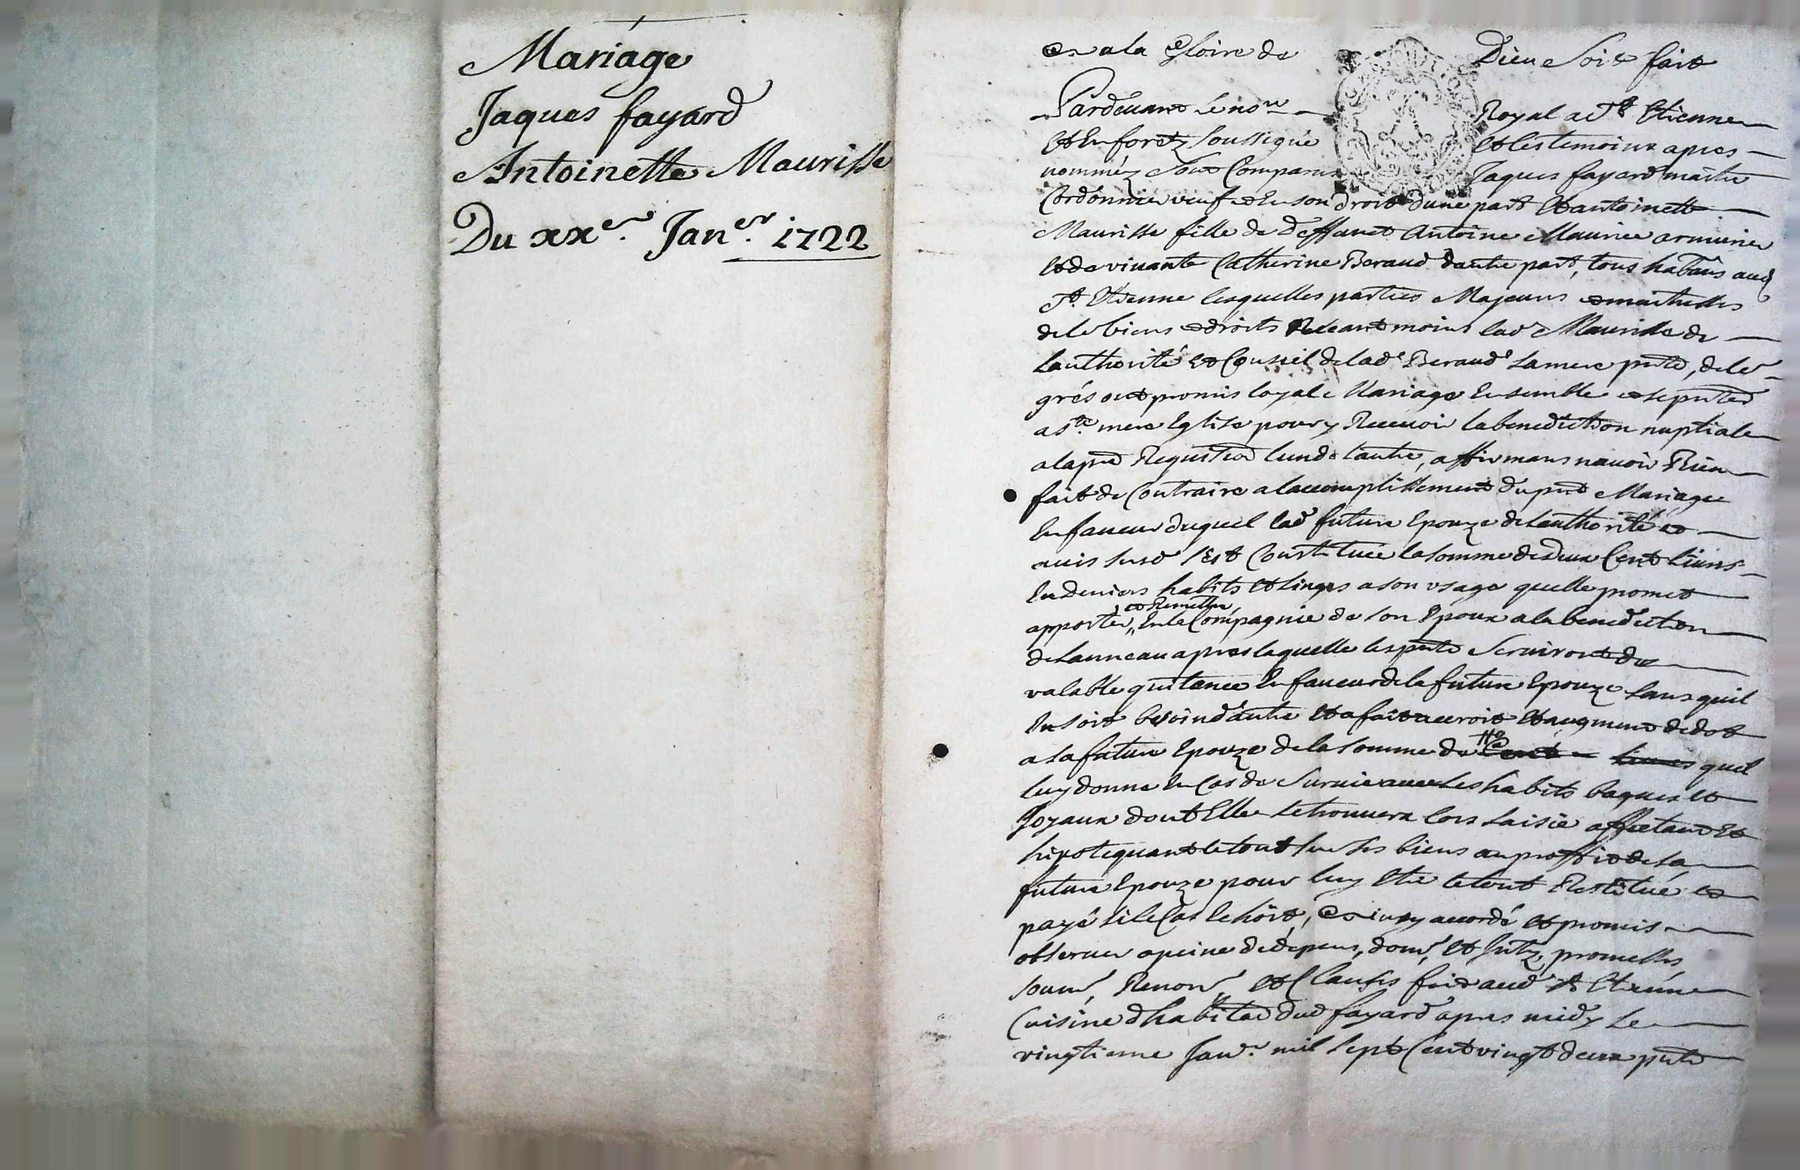 Mariage
Jaques fayard
Antoinette Maurisse
Du xxe. Janer. 1722
a la Gloire de Dieu Soit fait
Pardevant le nore Royal a St Etienne
et En forez soussigné et les temoins apres
nommés Jaques fayard maitre
Cordonnier veuf et En son droit dune part Et antoinette
Maurisse fille de Deffunct Antoine Maurice armurier
et de vivante Catherine Beraud dautre part, tous habitans aud
St Etienne lesquelles parties Majeurs et maitresses
de les biens et droits lad Maurisse de
lauthorité et Conseil de lade Beraud sa mere pnte, de le
grés ont promis loyal Mariage Ensemble et se pnter
a ste mere Eglise pour y Recevoir la benediction nuptiale
a la pre Requisition lun de lautre, affirmans navoir Rien
fait de Contraire a laccomplissement du pnt Mariage
En faveur duquel lad future Epouze de lauthorité et
avis susd sest Constituée la somme de deux Cent livres
En deniers habits et linges a son usage quelle promet
apporter et Remettre En la Compagnie de son Epoux a la benediction
de lanneau apres laquelle les pntes Serviront de
valable quitance En faveur de la future Epouze sans quil
En soit besoin dautre et a fait accroit et augment de dot
a la future Epouze de la somme de Cent livres quil
luy donne En Cas de Survie avec les habits bagues et
Joyaux dont Elle se trouvera lors saisie affectant Et
hipotequant le tout sur ses biens au proffit de la
future Epouze pour luy Etre le tout Restitué et
payé si le Cas Echoit, ainsy accordé et promis
observer a peine de depens, dom, et Intz, promesses
soum, Renon, et Clauses fait aud St Etienne
Cuisine dhabitaon dud fayard apres midy le
vingtieme Janr. mil sept Cent vingt deux pnts